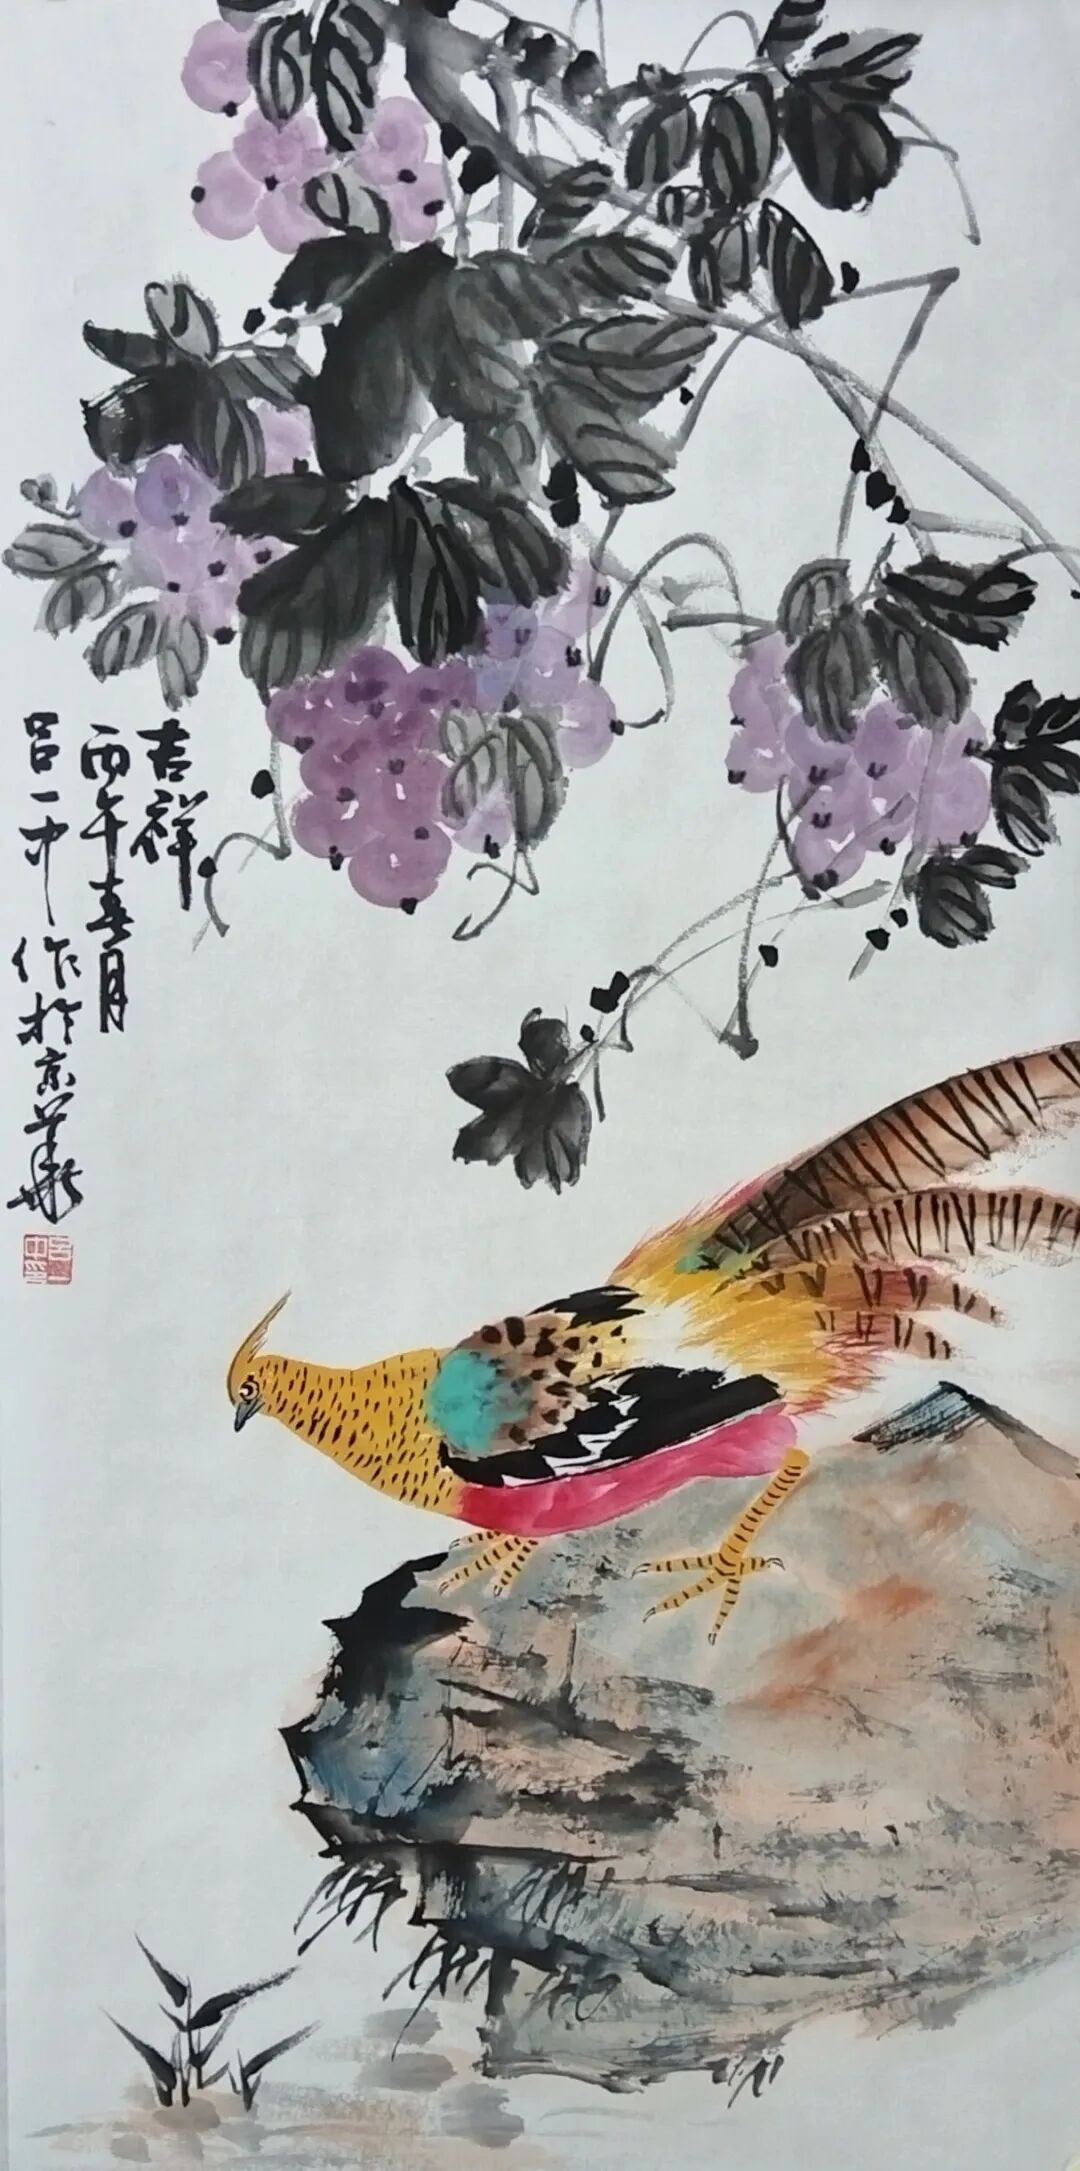 吉祥
丙午春月
吕一中作於京华